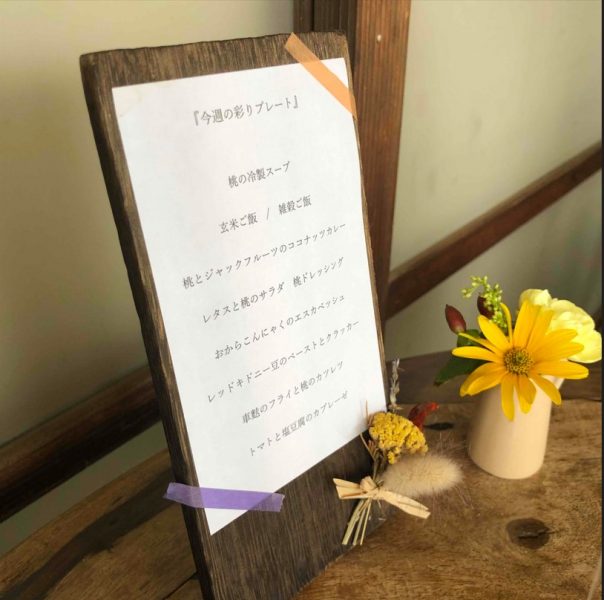 『今週の彩りプレート』
桃の冷製スープ
玄米ご飯 / 雑穀ご飯
桃とジャックフルーツのココナッツカレー
レタスと桃のサラダ 桃ドレッシング
おからこんにゃくのエスカベッシュ
レッドキドニー豆のペーストとクラッカー
車麩のフライと桃のカツレツ
トマトと塩豆腐のカプレーゼ